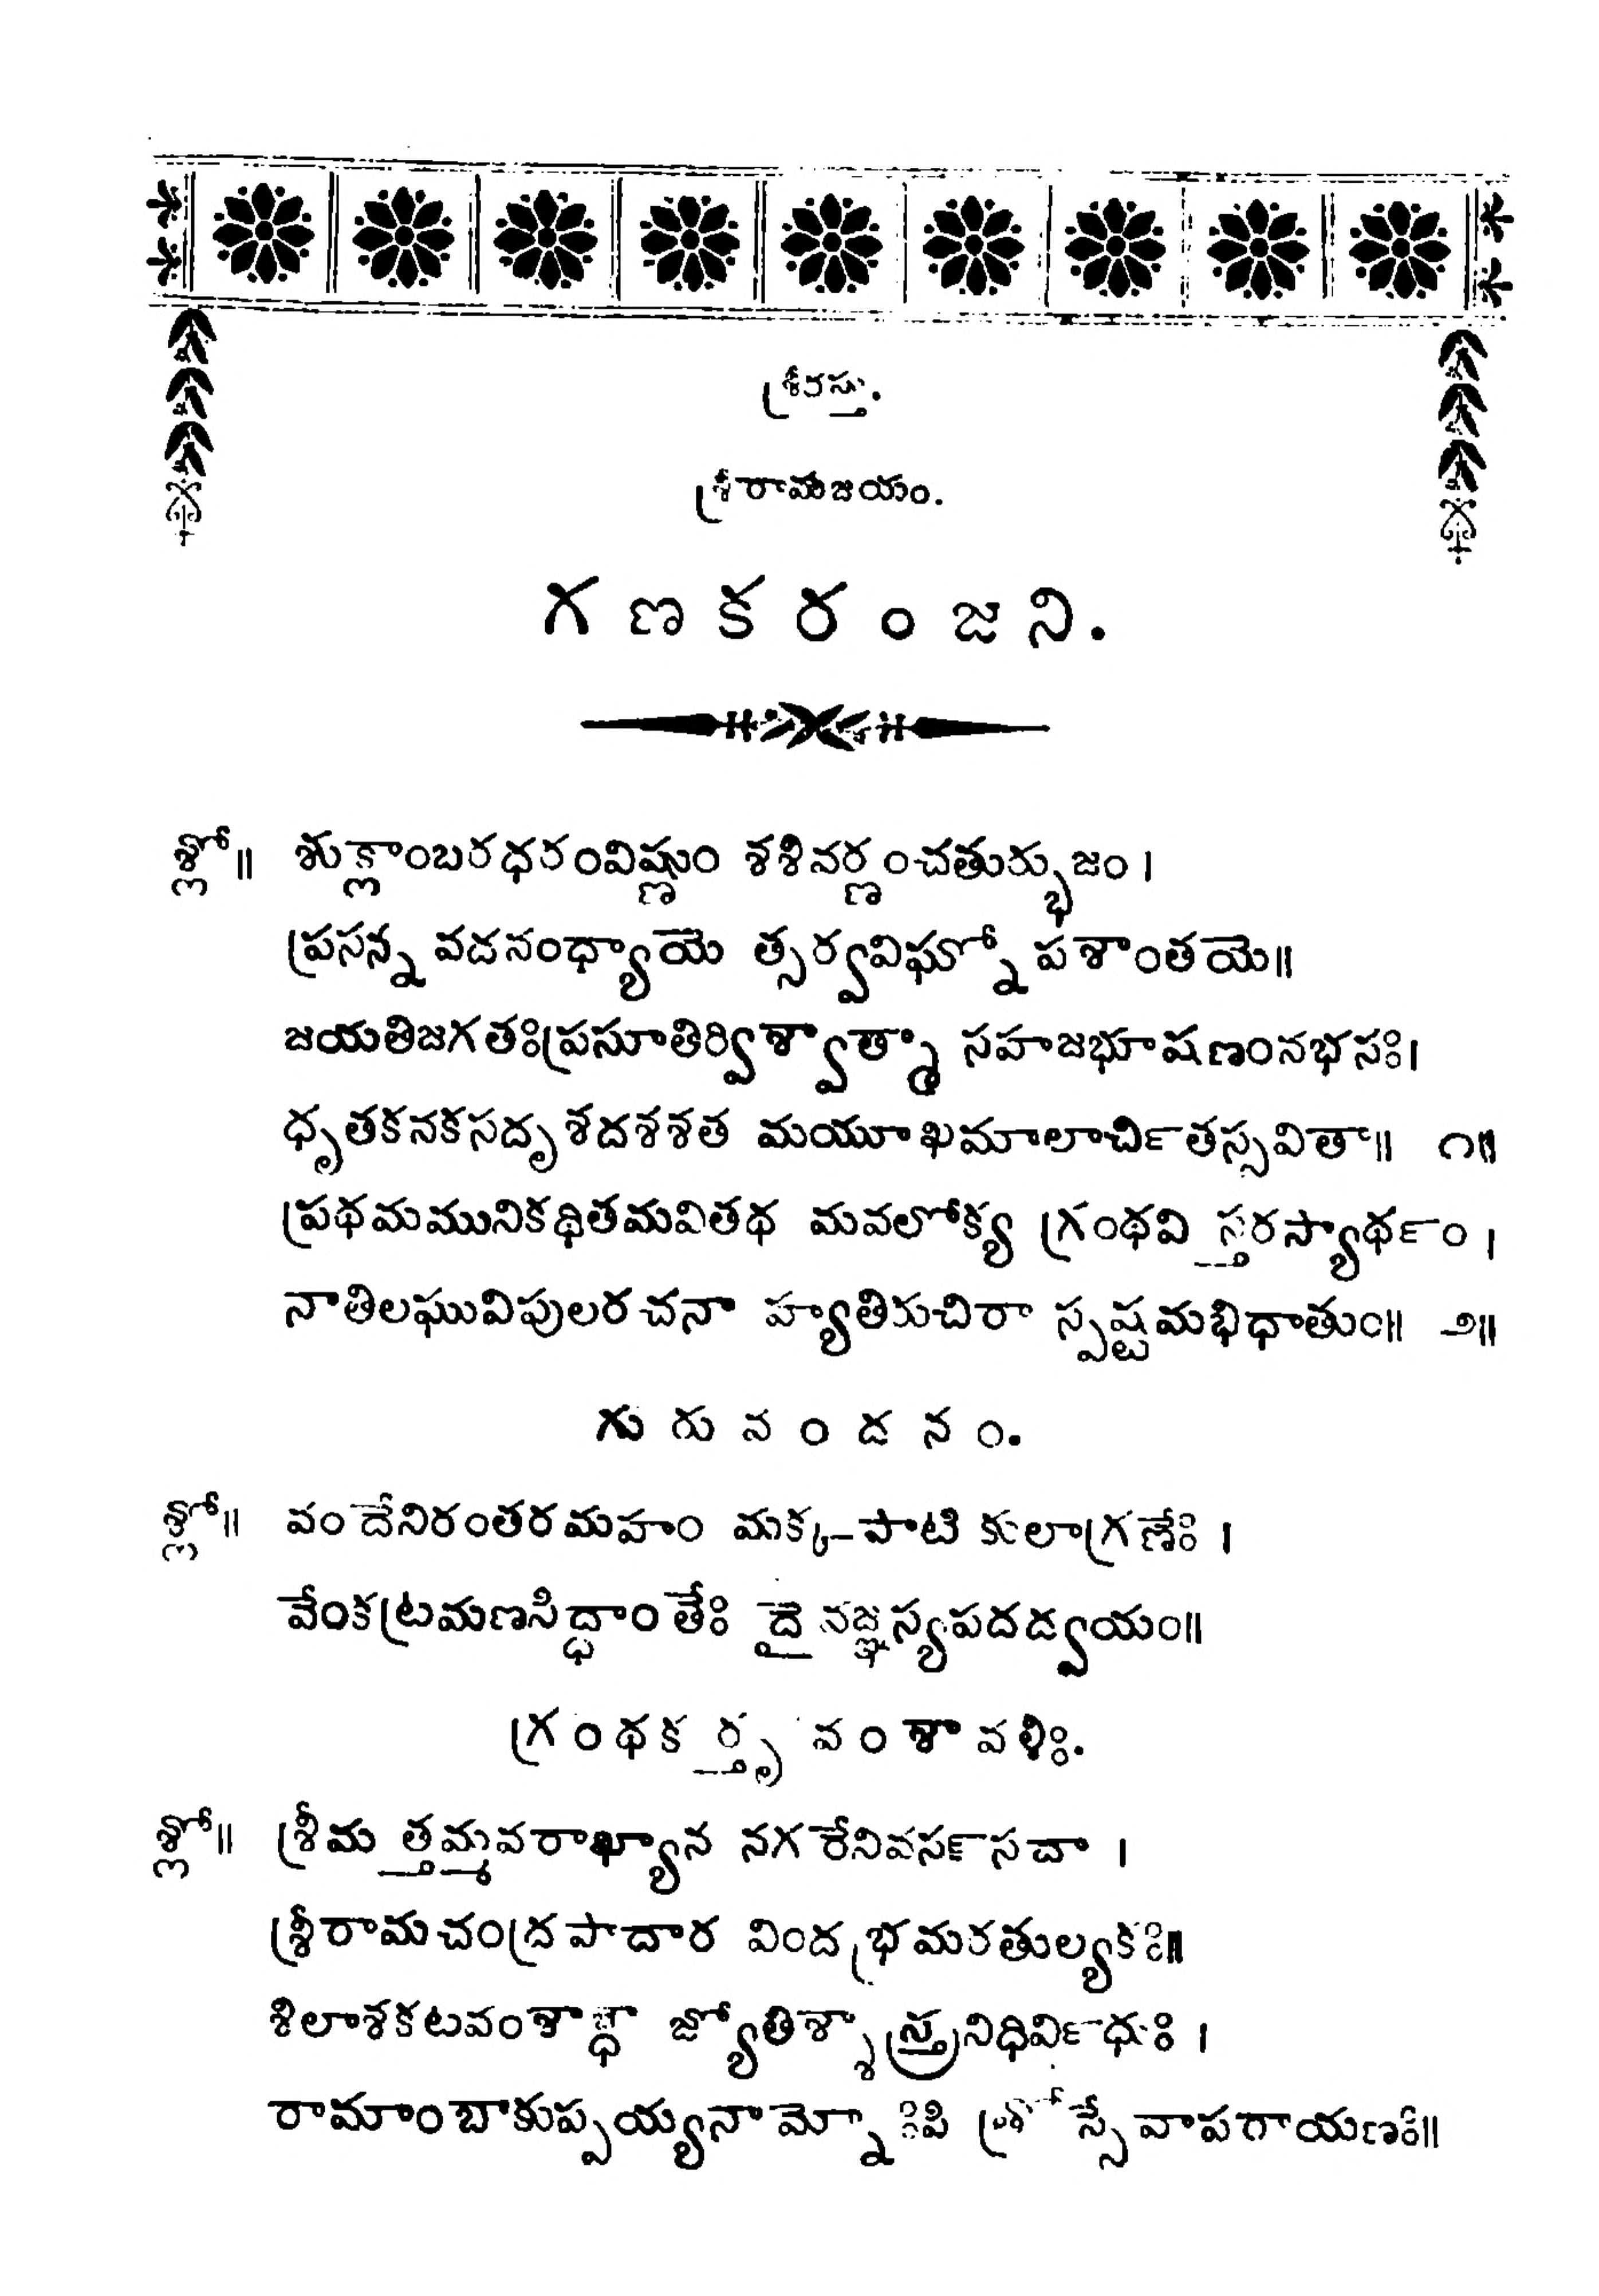 శ్రీరస్తు.
శ్రీరామజయం.
గణకరంజని.
శ్లో॥ శుక్లాంబరధరంవిష్ణుం శశివర్ణంచతుర్భుజం।
ప్రసన్న వదనంధ్యాయే త్సర్వవిఘ్నో పశాంతయే॥
జయతిజగతఃప్రసూతిర్విశ్వాత్మా సహజభూషణంనభసః।
ధృతకనకసదృశదశశత మయూఖమాలార్చితస్సవితా॥ ౧॥
ప్రథమమునికథితమవితథ మవలోక్య గ్రంథవి స్తరస్యార్థం।
నాతిలఘువిపులరచనా హ్యతిరుచిరా స్పష్టమభిధాతుం॥ ౨॥
గురువందనం.
శ్లో॥ వందేనిరంతరమహం మక్కపాటి కులాగ్రణేః।
వేంకట్రమణసిద్ధాంతేః దైవజ్ఞస్యపదద్వయం॥
గ్రంథకర్తృవంశావళిః.
శ్లో॥ శ్రీమ త్తమ్మవరాఖ్యాన నగరేనివసన్సదా।
శ్రీరామచంద్రపాదార వింద భ్రమరతుల్యకః॥
శిలాశకటవంశాబ్ధా జ్యోతిశ్శాస్త్రనిధిర్విధుః।
రామాంబాకుప్పయ్యనామ్నోః పిత్రోస్సేవాపరాయణః॥